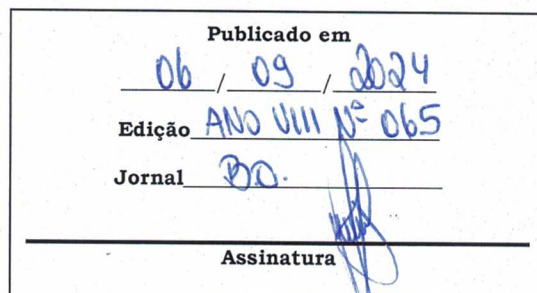 Publicado em
06 / 09 / 2024
Edição ANO VIII Nº 065
Jornal B.O.
Assinatura